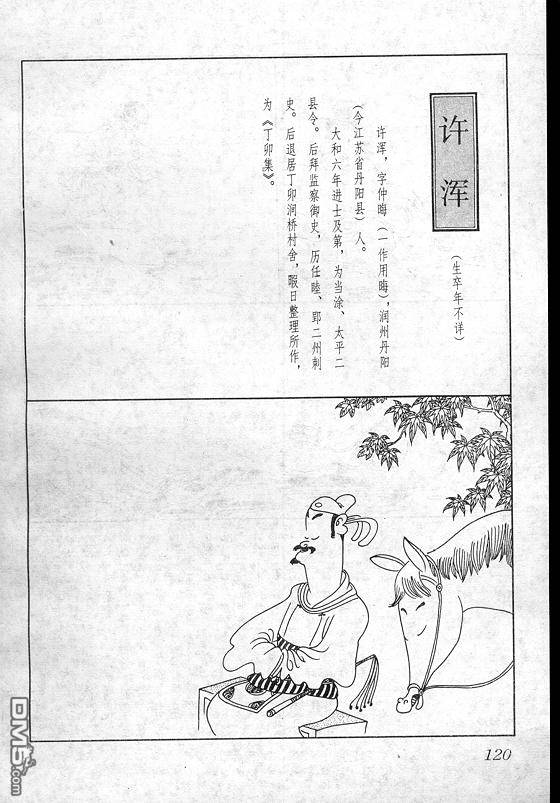 许浑
(生卒年不详)
许浑，字仲晦(一作用晦)，润州丹阳
(今江苏省丹阳县)人。
大和六年进士及第，为当涂、太平二
县令。后拜监察御史，历任睦、郢二州刺
史。后退居丁卯涧桥村舍，暇日整理所作，
为《丁卯集》。
120
DM5